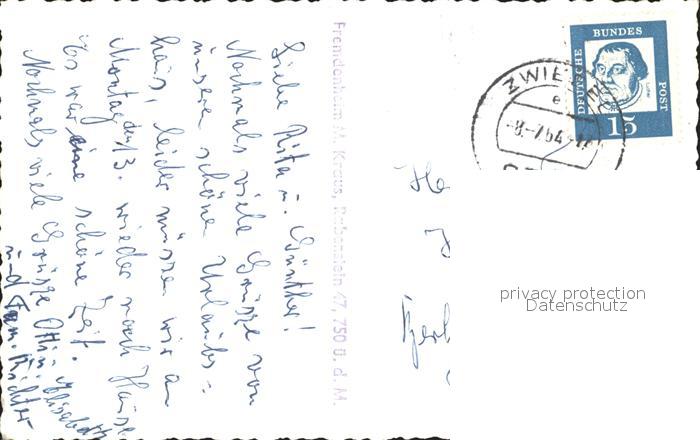 Liebe Rita u. Günther!
Nochmals viele Grüsse von
unsere schöne Urlaubs=
haus, leider müssen wir am
Montag den 13. wieder nach Hause
Es war eine schöne Zeit.
Nochmals viele Grüsse
und Fam. Richter
Fremdenheim M. Kraus, Rabenstein 47, 750 ü. d. M.
DEUTSCHE BUNDES POST
Luther
15
ZWIESEL
e
-8.-7.64
privacy protection
Datenschutz